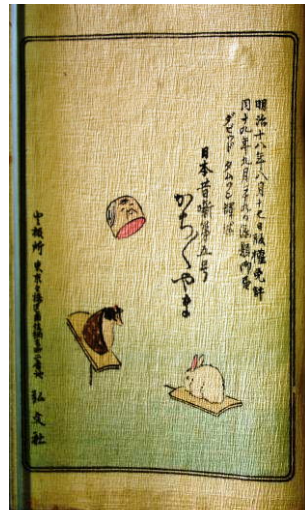 明治十八年八月十七日版權免許
同十九年九月添題御届
ダビッド タムソン譯述
日本昔噺第五号
かち〱やま
出板所 東京々橋區南佐柄木町二番地 弘文社